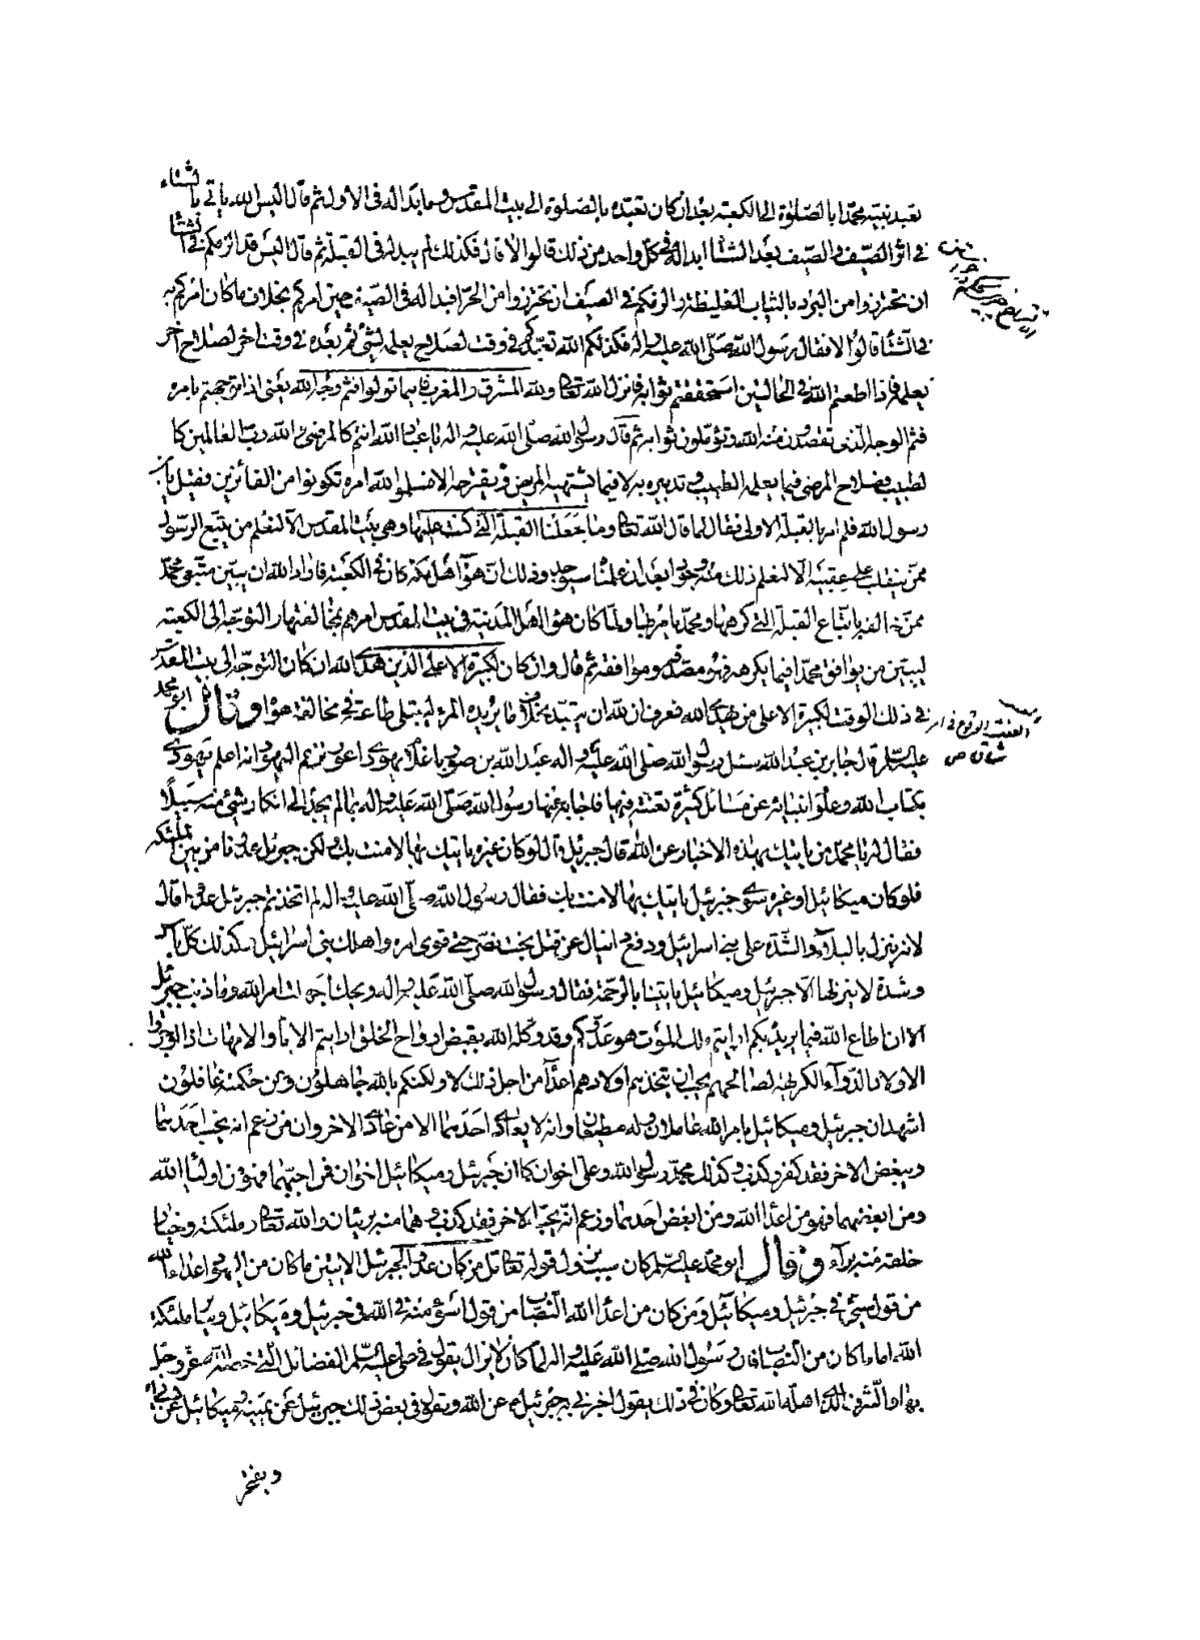 تعبد نبيه محمدا بالصلوة الى الكعبة بعد ان كان تعبده بالصلوة الى بيت المقدس وما بدا له في الاول ثم قال اليس الله ياتي بالشتاء
في اثر الصيف والصيف بعد الشتا ابدا له في كل واحد من ذلك قالوا لا قال فكذلك لم يبد له في القبلة ثم قال اليس قد الزمكم في الشتا
ان تحترزوا من البرد بالثياب الغليظة والزمكم في الصيف ان تحترزوا من الحر افبدا له في الصيف حين امركم بخلاف ما كان امركم به
في الشتا قالوا لا فقال رسول الله صلى الله عليه واله فكذلكم الله تعبدكم في وقت لصلاح يعلمه لشئ ثم بعده في وقت اخر لصلاح اخر
يعلمه فاذا اطعتم الله في الحالتين استحققتم ثوابه فانزل الله تعالى ولله المشرق والمغرب فاينما تولوا فثم وجه الله يعني اذا توجهتم بامره
فثم الوجه الذي تقصدون منه الله وتؤملون ثوابه ثم قال رسول الله صلى الله عليه واله يا عباد الله انتم كالمرضى والله رب العالمين كا
لطبيب فصلاح المرضى فيما يعلمه الطبيب وتدبيره به لا فيما يشتهيه المريض ويقترحه الا فسلموا لله امره تكونوا من الفائزين فقيل يابن
رسول الله فلم امر بالقبلة الاولى فقال لما قال الله تعالى وما جعلنا القبلة التي كنت عليها وهي بيت المقدس الا لنعلم من يتبع الرسول
ممن ينقلب على عقبيه الا لنعلم ذلك منه وجودا بعد ان علمناه سيوجد وذلك ان هوآء اهل مكة كان في الكعبة فاراد الله ان يبين متبعي محمد
ممن خالفه باتباع القبلة التي كرهها ومحمد يامر بها ولما كان هوآء اهل المدينة في بيت المقدس امرهم بمخالفتها والتوجه الى الكعبة
ليبين من يوافق محمدا فيما يكرهه فهو مصدقه وموافقه ثم قال وان كان لكبيرة الا على الذين هدى الله ان كان التوجه الى بيت المقدس
في ذلك الوقت لكبيرة الا على من يهدي الله فعرف ان لله ان يتعبد بخلاف ما يريده المرء ليبتلي طاعته في مخالفة هواه وقال ابو محمد
عليه السلم قال جابر بن عبد الله سئل رسول الله صلى الله عليه واله عبد الله بن صوريا غلام يهودي اعور تزعم اليهود انه اعلم يهودي
بكتاب الله وعلوم انبيائه عن مسائل كثيرة تعنته فيها فاجابه عنها رسول الله صلى الله عليه واله بما لم يجد الى انكار شئ منه سبيلا
فقال له يا محمد من ياتيك بهذه الاخبار عن الله قال جبرئيل قال لو كان غيره ياتيك بها لامنت بك ولكن جبرئيل عدونا من بين الملئكة
فلو كان ميكائيل او غيره سوى جبرئيل ياتيك بها لامنت بك فقال رسول الله صلى الله عليه واله لم اتخذتم جبرئيل عدوا قال
لانه ينزل بالبلاء والشدة على بني اسرائيل ودفع دانيال عن قتل بخت نصر حتى قوي امره واهلك بني اسرائيل وكذلك كل باس
وشدة لا ينزلها الا جبرئيل وميكائيل ياتينا بالرحمة فقال رسول الله صلى الله عليه واله ويحك اجهلت امر الله وما ذنب جبرئيل
الا ان اطاع الله فيما يريده بكم ارايتم ملك الموت هو عدوكم وقد وكله الله بقبض ارواح الخلق ارايتم الاباء والامهات اذا اوجروا
الاولاد الدوآء الكريهة لصالحهم يجب ان يتخذهم اولادهم اعدآء من اجل ذلك لا ولكنكم بالله جاهلون وعن حكمته غافلون
اشهد ان جبرئيل وميكائيل بامر الله عاملان وله مطيعان وانه لا يعادي احدهما الا من عادى الاخر وان من زعم انه يحب احدهما
ويبغض الاخر فقد كفر وكذب وكذلك محمد رسول الله وعلي اخوان كما ان جبرئيل وميكائيل اخوان فمن احبهما فهو من اولياء الله
ومن ابغضهما فهو من اعداء الله ومن ابغض احدهما وزعم انه يحب الاخر فقد كذب وهما منه بريئان والله تعالى وملئكته وخيار
خلقه منه برآء وقال ابو محمد عليه السلم كان سبب نزول قوله تعالى قل من كان عدوا لجبرئيل الايتين ما كان من اليهود اعداء الله
من قول سيئ في جبرئيل وميكآئيل ومن كان من اعداء الله النصاب من قول اسوء منه في الله وفي جبرئيل وميكائيل وساير ملئكة
الله اما ما كان من النصاب فان رسول الله صلى الله عليه واله لما كان لا يزال يقول في علي عليه السلم الفضائل التي خصه الله عز وجل
بها والشرف الذي اهله الله تعالى وكان في ذلك يقول اخبرني به جبرئيل عن الله ويقول في بعض ذلك جبرئيل عن يمينه وميكائيل عن يساره
ويفتخر